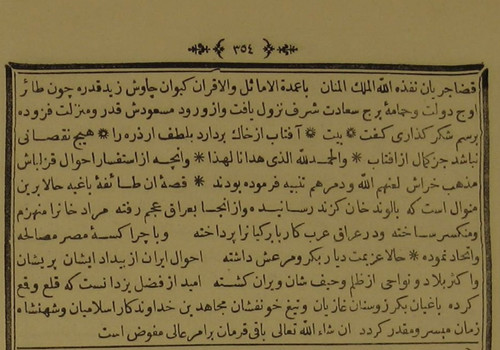 ٣٥٤
قضا جريان نفذه الله الملك المنان باعمدة الاماثل والاقران كيوان جاوش زيد قدره چون طائر
اوج دولت وحمامهٔ برج سعادت شرف نزول يافت واز ورود مسعودش قدر ومنزلت فزوده
برسم شكر گذارى گفت * بيت * آفتاب از خاك بردارد بلطف ار ذره را * هيچ نقصانى
نباشد چز كمال از افتاب * والحمد لله الذى هدانا لهذا * وانچه از استفسار احوال قزلباش
مذهب خراش لعنهم الله ودمرهم تنبيه فرموده بودند * قصهٔ ان طائفهٔ باغيه حالا برين
منوال است كه بالوند خان گزند رسانيده واز انجا بعراق عجم رفته مراد خانرا منهزم
ومنكسر ساخته ودر عراق عرب كار باريكيا نرا پرداخته وبا چراكسهٔ مصر مصالحه
واتحاد نموده * حالا عزيمت ديار بكر ومرعش داشته احوال ايران از بيداد ايشان پريشان
واكثر بلاد ونواحى از ظلم وحيف شان ويران گشته اميد از فضل يزدانست كه قلع وقمع
كرده باغيان بگرز وسنان غازيان وتيغ خونفشان مجاهدين خداوندكار اسلاميان وشهنشاه
زمان ميسر ومقدر گردد ان شاء الله تعالى باقى فرمان برامر عالى مفوض است